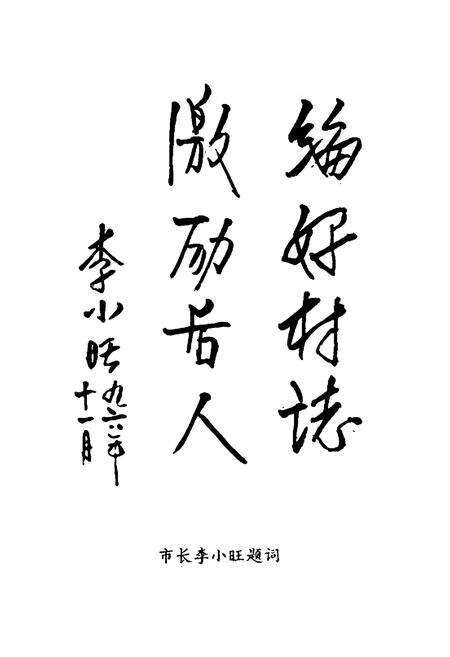 编好村誌
激励后人
李小旺
九六年
十一月
市长李小旺题词